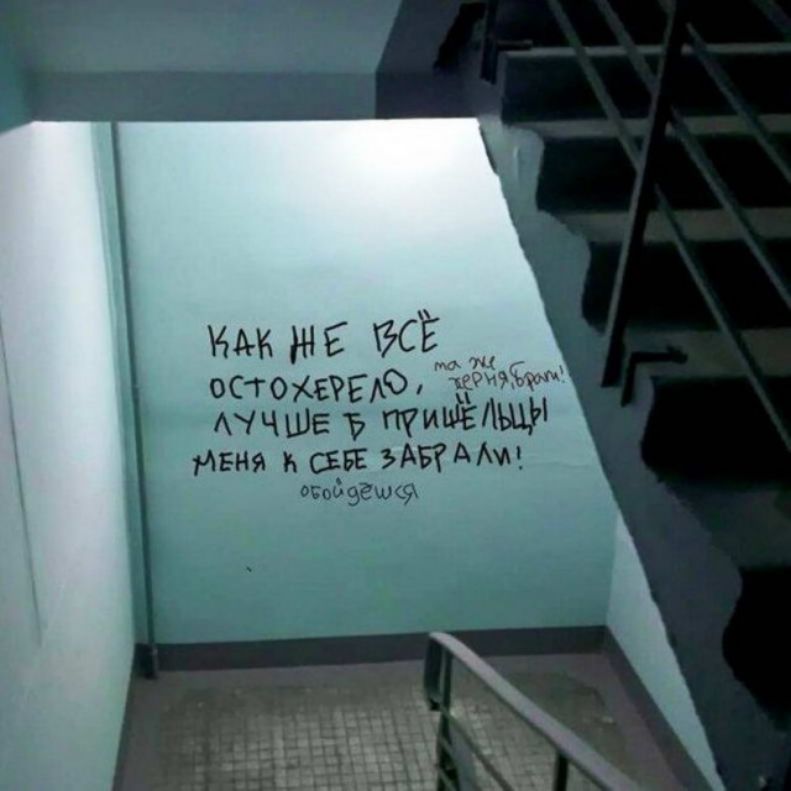 КАК ЖЕ ВСЁ
ОСТОХЕРЕЛО,
та же
херня, брат!
ЛУЧШЕ Б ПРИШЕЛЬЦЫ
МЕНЯ К СЕБЕ ЗАБРАЛИ!
обойдёшся